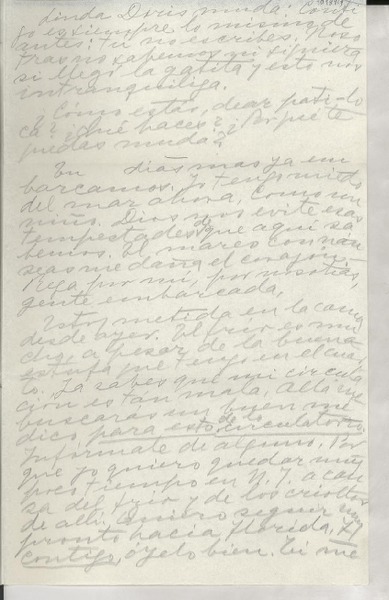 linda Doris, muda: Conti-
go es siempre lo mismo de
antes: tu no escribes. Noso
tras no sabemos ni siquiera
si llegó la gatita y esto nos
intranquiliza.
¿Cómo estás, dear, pati-lo
ca? ¿Qué haces? ¿Por qué te
quedas muda?
En días más ya em
barcamos. Yo tengo miedo
del mar ahora, como un
niño. Dios nos evite esas
tempestades de que aquí sa
bemos. El mareo con náu
seas me daña el corazón.
Ruega por mí, por nosotras,
gente embarcada.
Estoy metida en la cama
desde ayer. El frío es mu
cho a pesar de la buena
estufa que tengo en el cuar
to. Ya sabes que mi circula
ción es tan mala. Allá me
buscarás un buen mé
dico, para esto de lo circulatorio.
Infórmate de alguno. Por
que yo quiero quedar muy
poco tiempo en N. Y. a cau
sa del frío y de los criollos
de allí. Quiero seguir muy
pronto hacia Florida, y
contigo, óyelo bien. Tú me